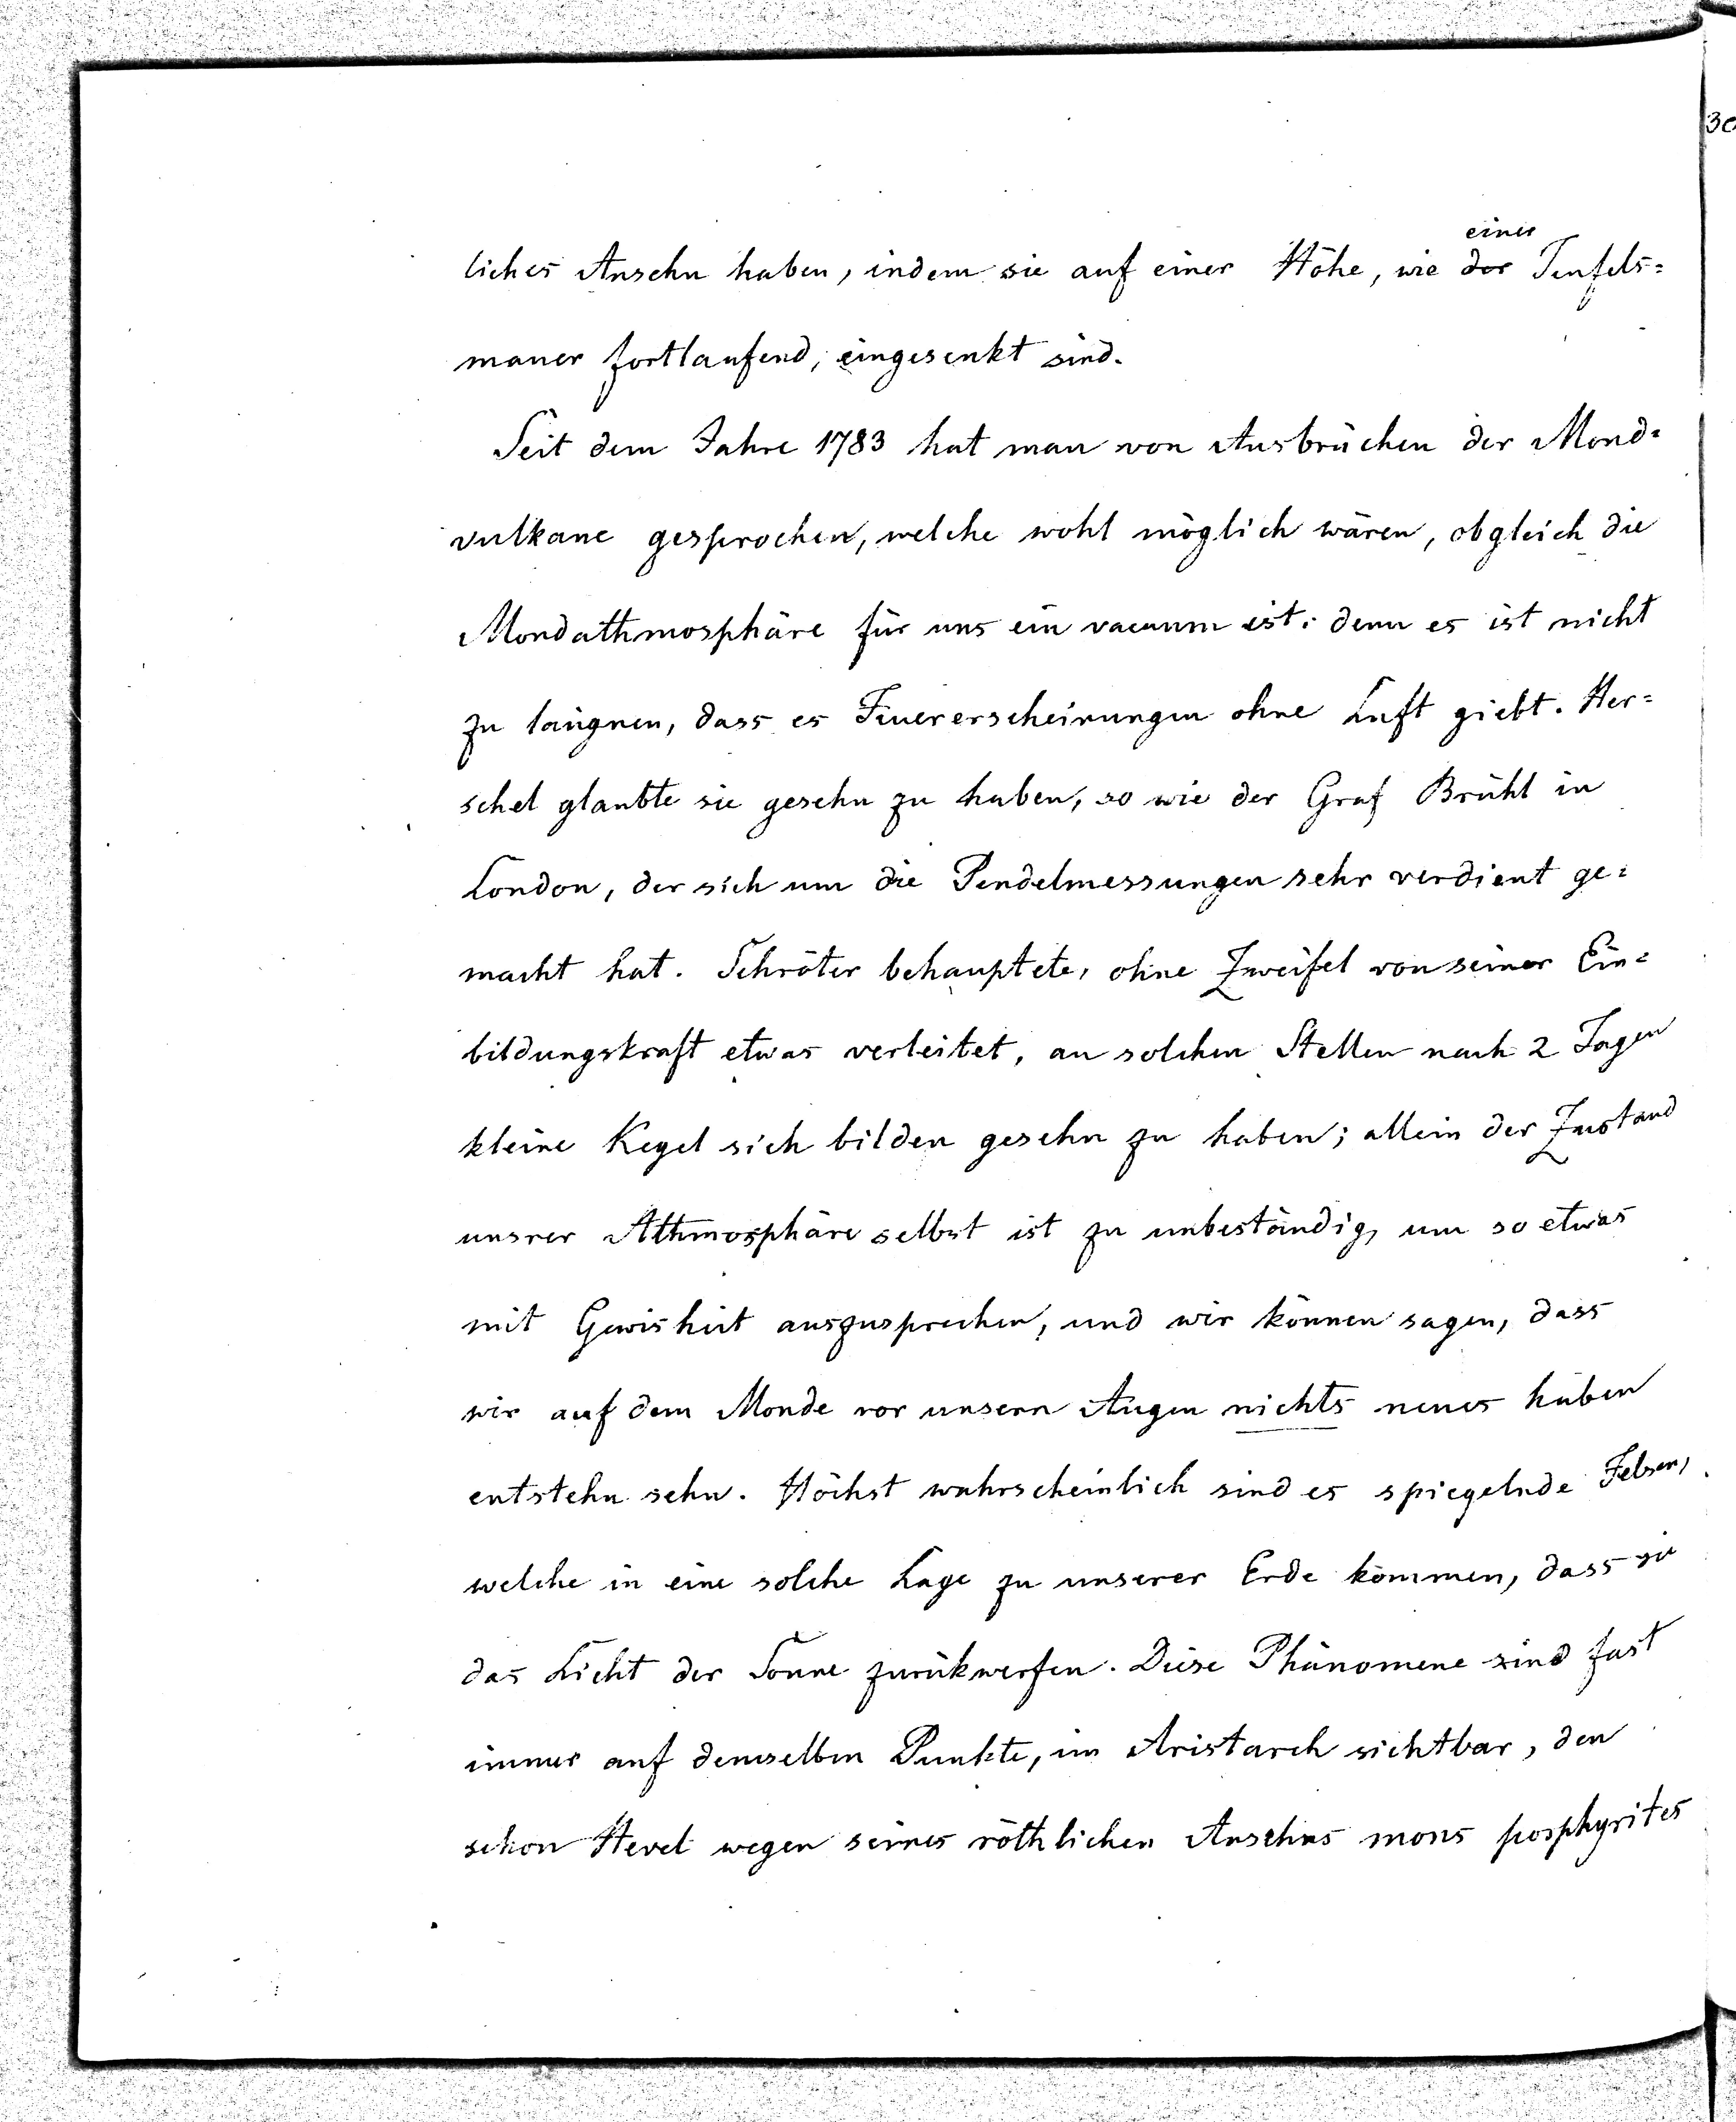 einer
liches Ansehn haben, indem sie auf einer Höhe, wie der Teufels=
mauer fortlaufend, eingesenkt sind.
Seit dem Jahre 1783 hat man von Ausbrüchen der Mond=
vulkane gesprochen, welche wohl möglich wären, obgleich die
Mondathmosphäre für uns ein vacuum ist: denn es ist nicht
zu läugnen, dass es Feuererscheinungen ohne Luft giebt. Her=
schel glaubte sie gesehn zu haben, so wie der Graf Brühl in
London, der sich um die Pendelmessungen sehr verdient ge=
macht hat. Schröter behauptete, ohne Zweifel von seiner Ein=
bildungskraft etwas verleitet, an solchen Stellen nach 2 Tagen
kleine Kegel sich bilden gesehn zu haben; allein der Zustand
unsrer Athmosphäre selbst ist zu unbeständig, um so etwas
mit Gewisheit auszusprechen, und wir können sagen, dass
wir auf dem Monde vor unsern Augen nichts neues haben
entstehn sehn. Höchst wahrscheinlich sind es spiegelnde Felsen,
welche in eine solche Lage zu unserer Erde kommen, dass sie
das Licht der Sonne zurükwerfen. Diese Phänomene sind fast
immer auf demselben Punkte, im Aristarch sichtbar, den
schon Hevel wegen seines röthlichen Ansehns mons porphyrites